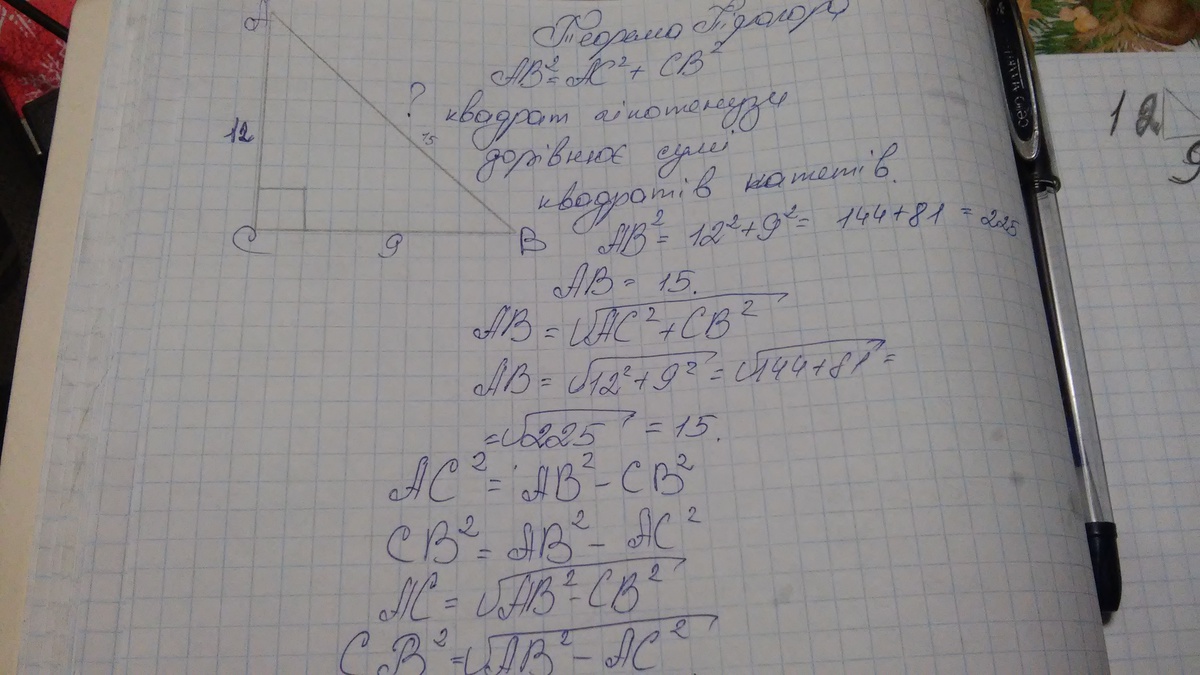 Теорема Піфагора
A
AB² = AC² + CB²
?
квадрат гіпотенузи
12
15
дорівнює сумі
квадратів катетів.
C
9
B
AB² = 12² + 9² = 144 + 81 = 225
AB = 15.
AB = √AC² + CB²
AB = √12² + 9² = √144 + 81 =
= √225 = 15.
AC² = AB² − CB²
CB² = AB² − AC²
AC = √AB² − CB²
CB² = √AB² − AC²
12
9